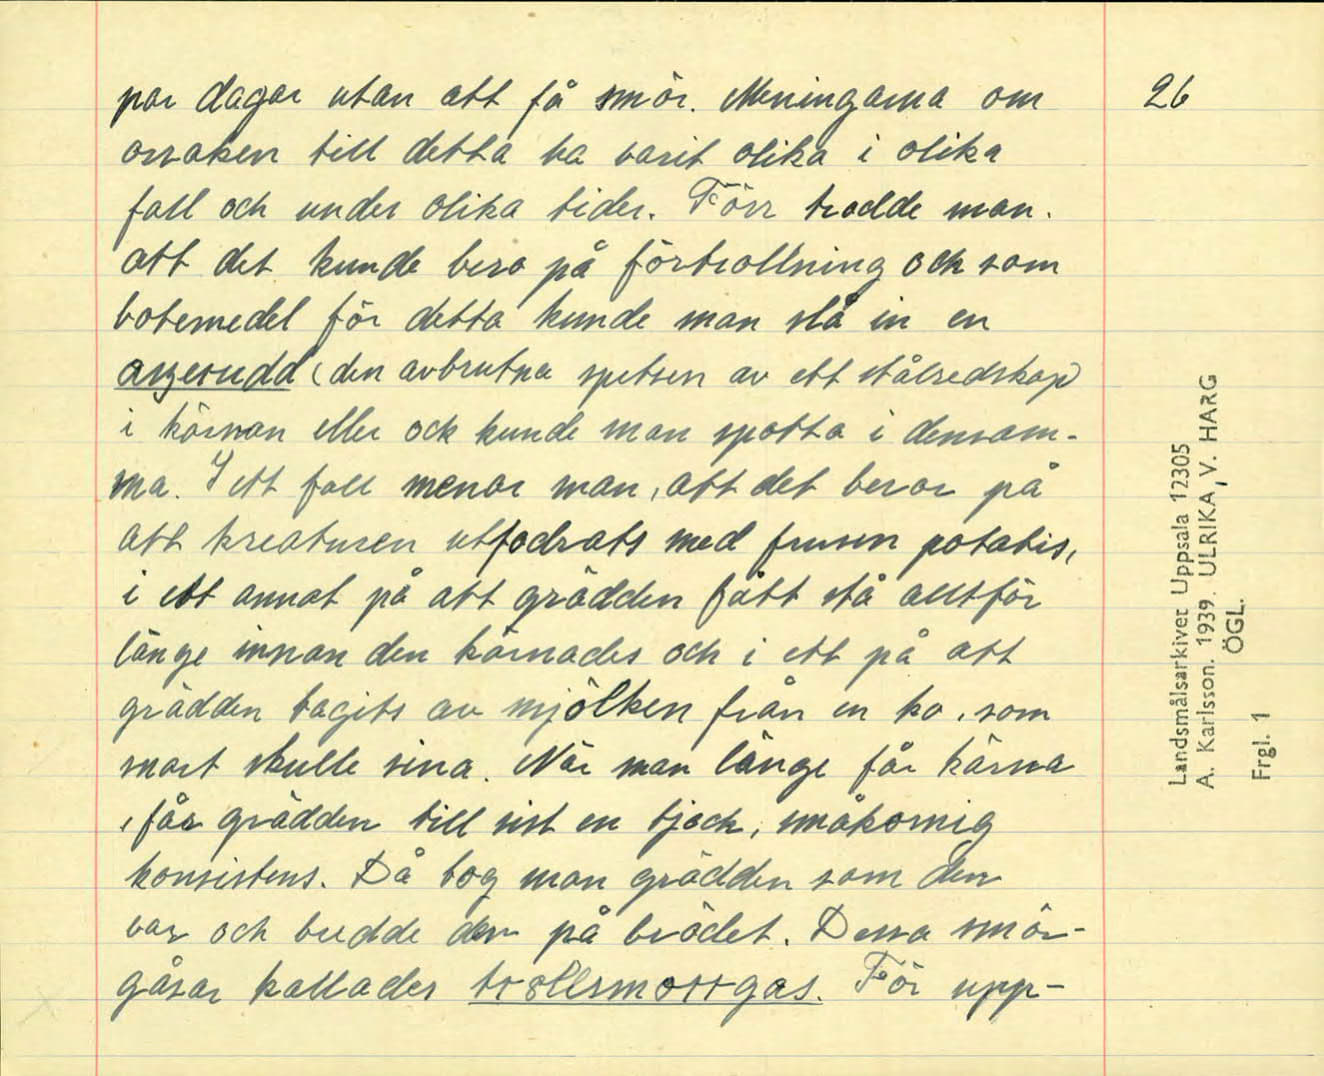 par dagar utan att få smör. Meningarna om
orsaken till detta ha varit olika i olika
fall och under olika tider. Förr trodde man.
att det kunde bero på förtrollning och som
botemedel för detta kunde man slå in en
(den avbrutna spetsen av ett stålredskap)
i kärnan eller ock kunde man spotta i densam-
ma. I ett fall menar man, att det beror på
att kreaturen utfodrats med frusen potatis,
i ett annat på att grädden fått stå alltför
länge innan den kärnades och i ett på att
grädden tagits av mjölken från en ko, som
snart skulle sina. När man länge får kärna
, får grädden till sist en tjock, småkornig
konsistens. Då tog man grädden som den
var och bredde den på brödet. Dessa smör-
gåsar kallades trollsmorrgas. För upp-
26
Landsmålsarkivet Uppsala 12305
A. Karlsson. 1939. ULRIKA, V. HARG
ÖGL.
Frgl. 1